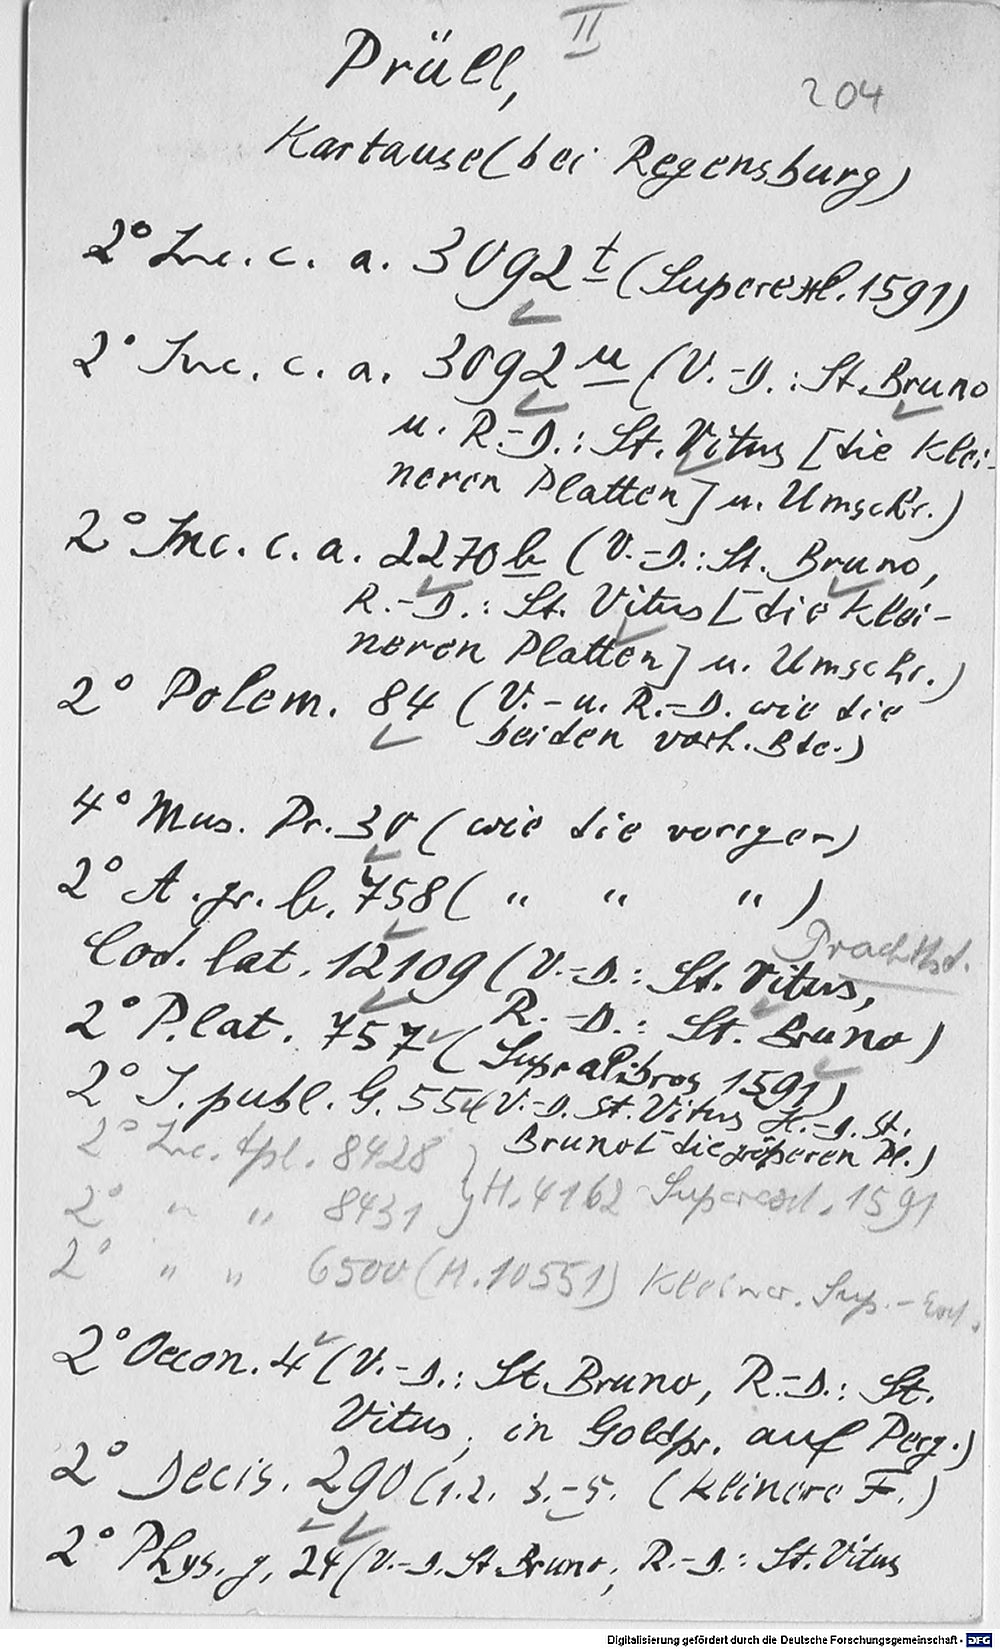 II
Prüll,
204
Kartause (bei Regensburg)
2° Inc. c. a. 3092 t (Superexl. 1591)
2° Inc. c. a. 3092 u (V.-D.: St. Bruno
u. R.-D.: St. Vitus [die klei-
neren Platten] u. Umschr.)
2° Inc. c. a. 2270 b (V.-D.: St. Bruno,
R.-D.: St. Vitus [die klei-
neren Platten] u. Umschr.)
2° Polem. 84 (V.- u. R.-D. wie die
beiden vorh. Bde.)
4° Mus. Pr. 30 (wie die vorigen)
2° A. gr. b. 758 ( " " " )
Prachthd.
Cod. lat. 12109 (V.-D.: St. Vitus,
R.-D.: St. Bruno)
2° P. lat. 757 (Supralibros 1591)
2° J. publ. G. 554 V.-D. St. Vitus H.-D. St.
Bruno [die größeren Pl.)
2° Inc. dpl. 8428
2° " " 8431 } H. 4162 Superexl. 1591
2° " " 6500 (H. 10551) kleiner. Sup.-Exl.
2° Oecon. 4 (V.-D.: St. Bruno, R.-D.: St.
Vitus, in Goldpr. auf Perg.)
2° Decis. 290 (1. 2. 3.-5. (kleinere F.)
2° Phys. g. 24 (V.-D. St. Bruno, R.-D.: St. Vitus
Digitalisierung gefördert durch die Deutsche Forschungsgemeinschaft - DFG